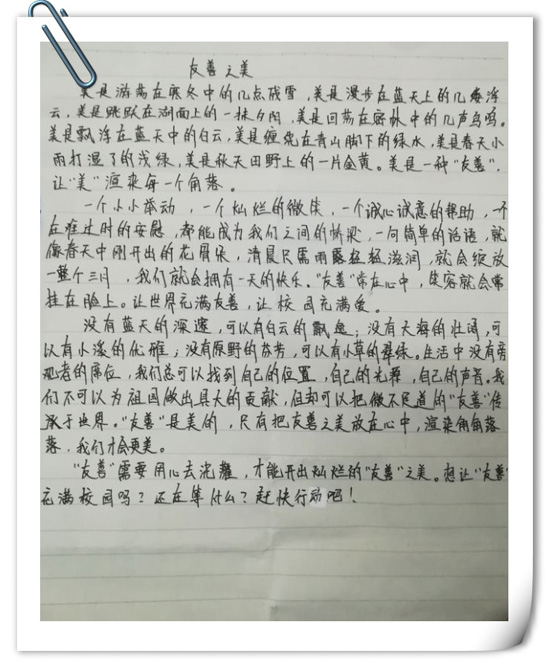 友善之美
美是游荡在寒冬中的几点残雪，美是漫步在蓝天上的几卷浮
云，美是跳跃在湖面上的一抹夕阳，美是回荡在密林中的几声鸟鸣。
美是飘浮在蓝天中的白云，美是缠绕在青山脚下的绿水，美是春天小
雨打湿了的浅绿，美是秋天田野上的一片金黄。美是一种“友善”，
让“美”渲染每一个角落。
一个小小举动，一个灿烂的微笑，一个诚心诚意的帮助，一个
在难过时的安慰，都能成为我们之间的桥梁，一句简单的话语，就
像春天中刚开出的花骨朵，清晨只需雨露轻轻滋润，就会绽放
一整个三月，我们就会拥有一天的快乐。“友善”常在心中，笑容就会常
挂在脸上。让世界充满友善，让校园充满爱。
没有蓝天的深邃，可以有白云的飘逸；没有大海的壮阔，可
以有小溪的优雅；没有原野的芬芳，可以有小草的翠绿。生活中没有旁
观者的席位，我们总可以找到自己的位置，自己的光源，自己的声音。我
们不可以为祖国做出巨大的贡献，但却可以把微不足道的“友善”传
承于世界。“友善”是美的，只有把友善之美放在心中，渲染角角落
落，我们才会更美。
“友善”需要用心去浇灌，才能开出灿烂的“友善”之美。想让“友善”
充满校园吗？还在等什么？赶快行动吧！